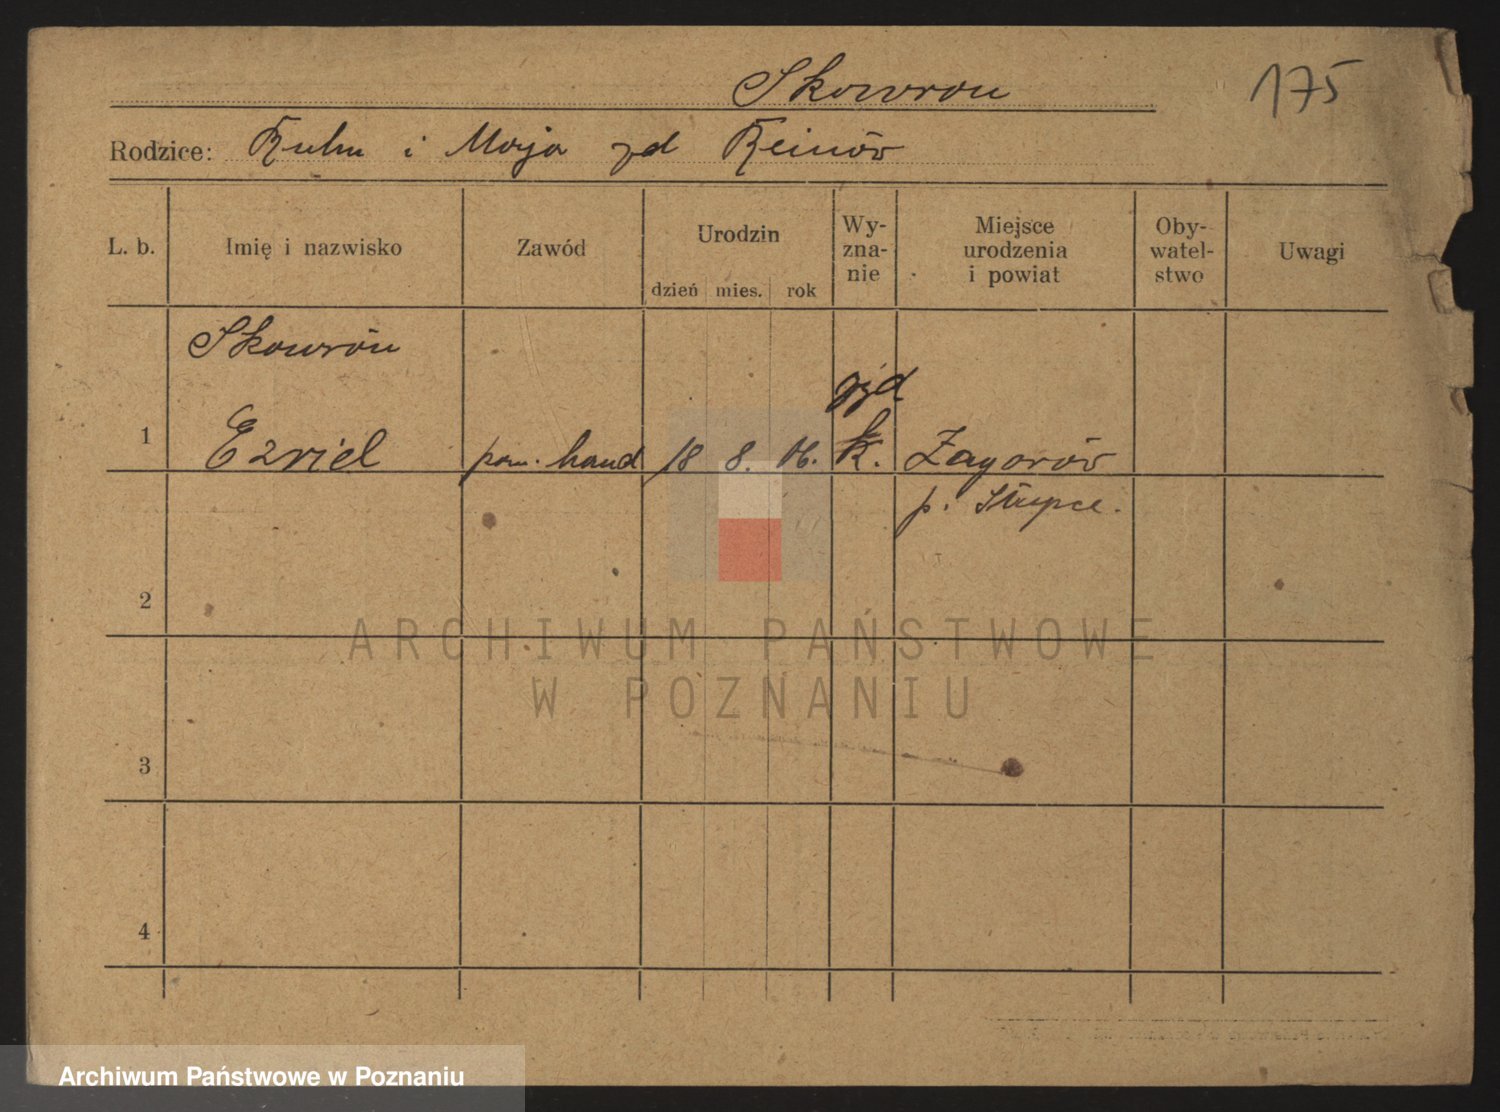 Skowron
175
Rodzice: Kuhn i Maja zd Keinów
L. b.
Imię i nazwisko
Zawód
Urodzin
dzień mies. rok
Wy-
zna-
nie
Miejsce
urodzenia
i powiat
Oby-
watel-
stwo
Uwagi
Skowrón
1 Ezriel pom. hand 18 8. 06. Zagorów
p. Słupce.
2
3
4
ARCHIWUM PAŃSTWOWE
W POZNANIU
Archiwum Państwowe w Poznaniu